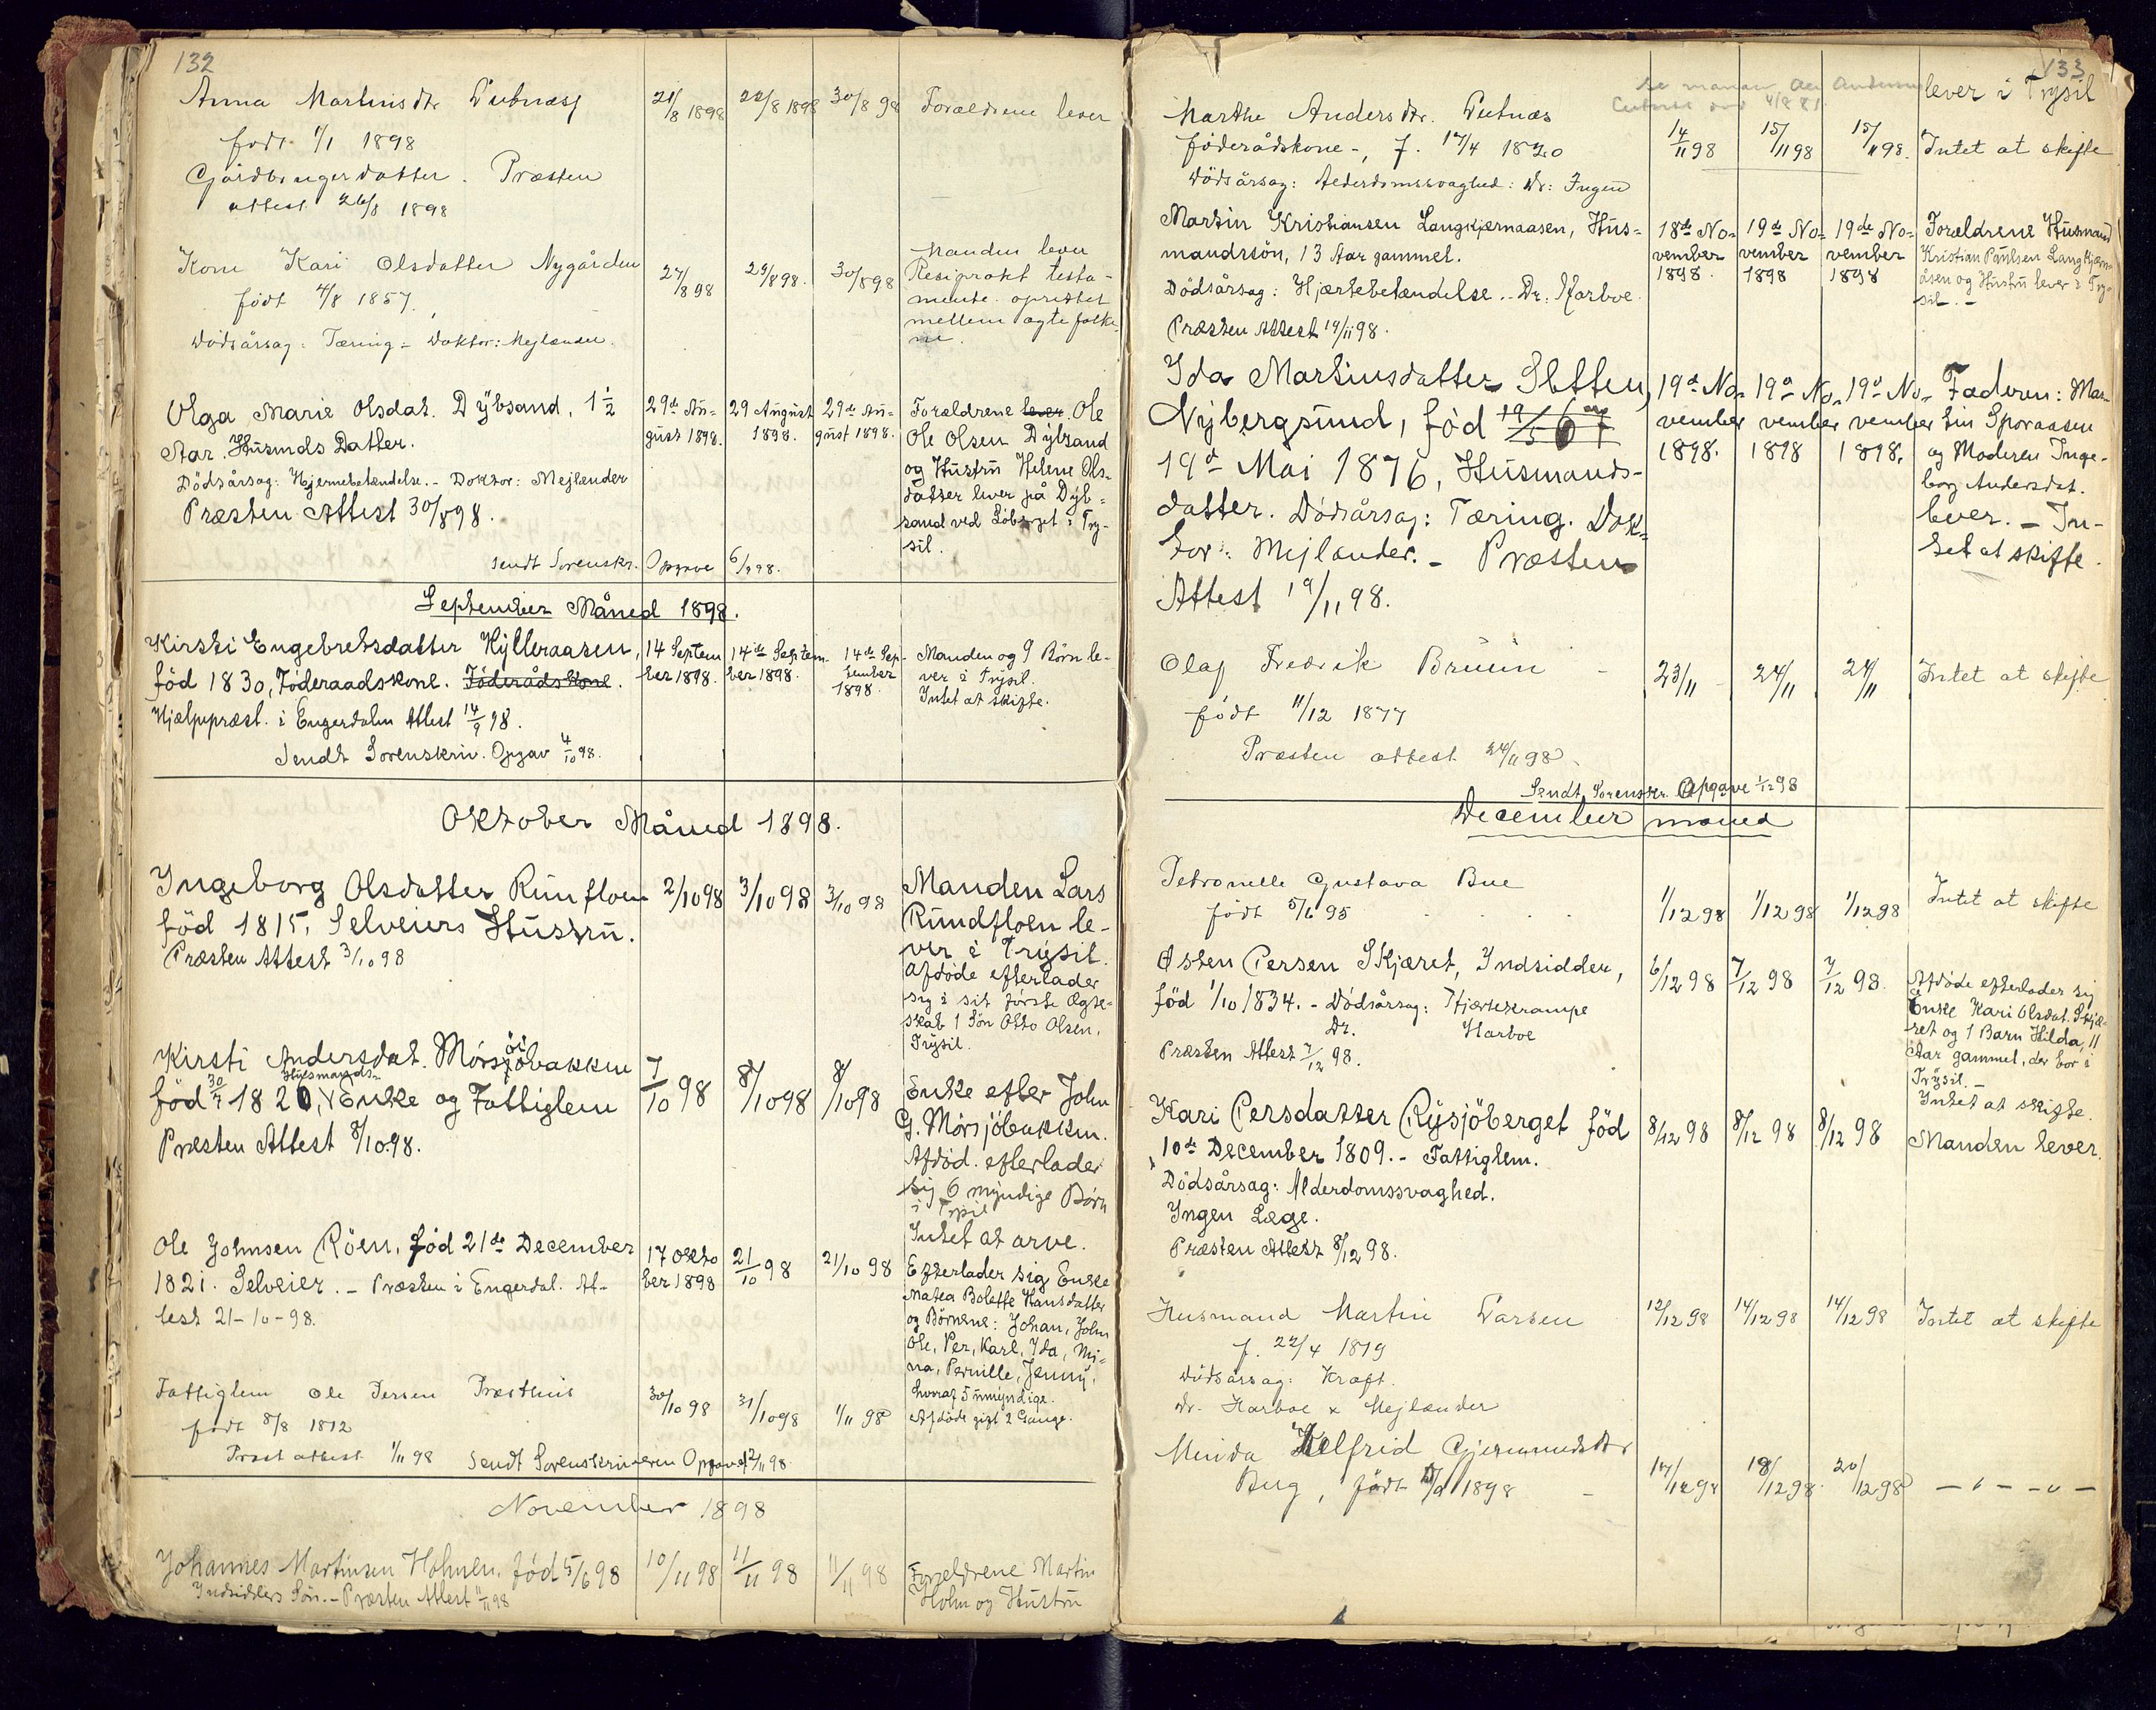 132
Anna Martinsdtr Lutnæs
født 1/1 1898
Gårdbrugerdatter. Præsten
attest 26/8 1898
21/8 1898
22/8 1898
30/8 98
Forældrene lever
Kone Kari Olsdatter Nygården
født 4/8 1857.
Dødsårsag: Tæring - Doktor: Mejlænder.
27/8 98
29/8 98.
30/8 98
Manden lever
Resiprokt testa-
mente oprettet
mellem ægtefolke
ne.
Olga Marie Olsdat. Dybsand, 1 1/2
Aar. Husmds Datter.
Dödsårsag: Hjernebetændelse. - Doktor: Mejlænder
Præsten Attest 30/8 98.
29de Au-
gust 1898.
29 August
1898.
29de Au-
gust 1898.
Forældrene lever. Ole
Ole Olsen Dybsand
og Hustru Helene Ols-
datter lever på Dyb-
sand ved Löberget i Try-
sil.
sendt Sorenskr. Opgave 6/9 98.
September Måned 1898.
Kirsti Engebretsdatter Hylleraasen,
föd 1830, Föderaadskone. Föderådskone.
Hjælpepræst. i Engerdalen Attest 14/9 98.
Sendt Sorenskriv. Opgav 4/10 98.
14 Septem
ber 1898.
14de Septem-
ber 1898.
14de Sep-
tember
1898.
Manden og 9 Börn le-
ver i Trysil.
Intet at skifte.
Oktober Måned 1898.
Ingeborg Olsdatter Runfloen
föd 1815, Selveiers Hustru.
Præsten Attest 3/10 98
2/10 98
3/10 98
3/10 98
Manden Lars
Rundfloen le-
ver i Trysil.
Afdöde efterlader
sig i sit förste Ægte-
skab 1 Sön Otto Olsen,
Trysil.
Kirsti Andersdat. Mörsjöbakken
föd 30/7 1820, Husmands- Enke og Fattiglem
Præsten Attest 8/10 98.
7/10 98
8/10 98
8/10 98
Enke efter John
G. Mörsjöbakken.
Afdöd. efterlader
sig 6 myndige Börn
i Trysil
Intet at arve.
Ole Johnsen Röen, föd 21de December
1821. Selveier. - Præsten i Engerdal. At-
test 21-10-98.
17 Okto
ber 1898
21/10 98
21/10 98
Efterlader sig Enke
Matea Bolette Hansdatter
og Börnene: Johan, John
Ole, Per, Karl, Ida, Mi-
na, Pernille, Jenny,
hvoraf 5 umyndige.
Afdöde gift 2 Gange.
Fattiglem Ole Persen Præsthus
født 8/8 1812
Præst attest 1/11 98
sendt Sorenskriveren Opgave 2/11 98.
30/10 98
31/10 98
1/11 98
November 1898
Johannes Martinsen Holmen, föd 5/6 98
Indsidders Sön. - Præsten Attest 11/11 98
10/11 98
11/11 98
11/11 98
Forældrene Martin
Holm og Hustru
133
lever i Trysil
Marthe Andersdtr. Lutnæs
föderådskone -, f. 17/4 1820
Dödsårsag: Alderdomssvaghed: Dr: Ingen
14/11 98
15/11 98
15/11 98.
Intet at skifte
Martin Kristiansen Langkjernaasen, Hus-
mandssön, 13 Aar gammel.
Dödsårsag: Hjertebetændelse. - Dr: Harboe.
Præsten Attest 19/11 98.
18de No-
vember
1898.
19de No-
vember
1898
19de No-
vember
1898
Forældrene Husmand
Kristian Paulsen Langkjern-
åsen og Hustru lever i Try-
sil. -
Ida Martinsdatter Sletten,
Nybergsund, föd 19/5 67
19de Mai 1876, Husmands-
datter. Dödsårsag: Tæring. Dok-
tor: Mejlænder. - Præstens
Attest 19/11 98.
19de No-
vember
1898.
19de No-
vember
1898
19de No-
vember
1898.
Faderen: Mar-
tin Sporaasen
og Moderen Inge-
borg Andersdat.
lever. - In-
tet at skifte.
Olaf Fredrik Bruun
født 11/12 1877
Præsten attest 24/11 98.
23/11
24/11
24/11
Intet at skifte
Sendt Sorenskr. Opgave 1/12 98
December måned
Petronelle Gustava Bue
født 5/6 95
1/12 98
1/12 98
1/12 98
Intet at skifte
Östen Persen Skjæret, Indsidder,
föd 1/10 1834. - Dödsårsag: Hjertekrampe
Dr. Harboe
Præsten Attest 7/12 98.
6/12 98
7/12 98
7/12 98.
Afdöde efterlader sig
Enke Kari Olsdat. Skjæ-
ret og 1 Barn Hilda, 11
Aar gammel, der bor i
Trysil. -
Intet at skifte.
Kari Persdatter Rysjöberget föd
10de December 1809. - Fattiglem.
Dödsårsag: Alderdomssvaghed.
Ingen Læge.
Præsten Attest 8/12 98.
8/12 98
8/12 98
8/12 98
Manden lever.
Husmand Martin Larsen
f. 22/4 1819
Dödsårsag: Kræft.
Dr. Harboe & Mejlænder
12/12 98
14/12 98
14/12 98
Intet at skifte
Minda Helfrid Gjermundsdtr
Berg, født 1898
17/12 98
18/12 98.
20/12 98
— " — — " —